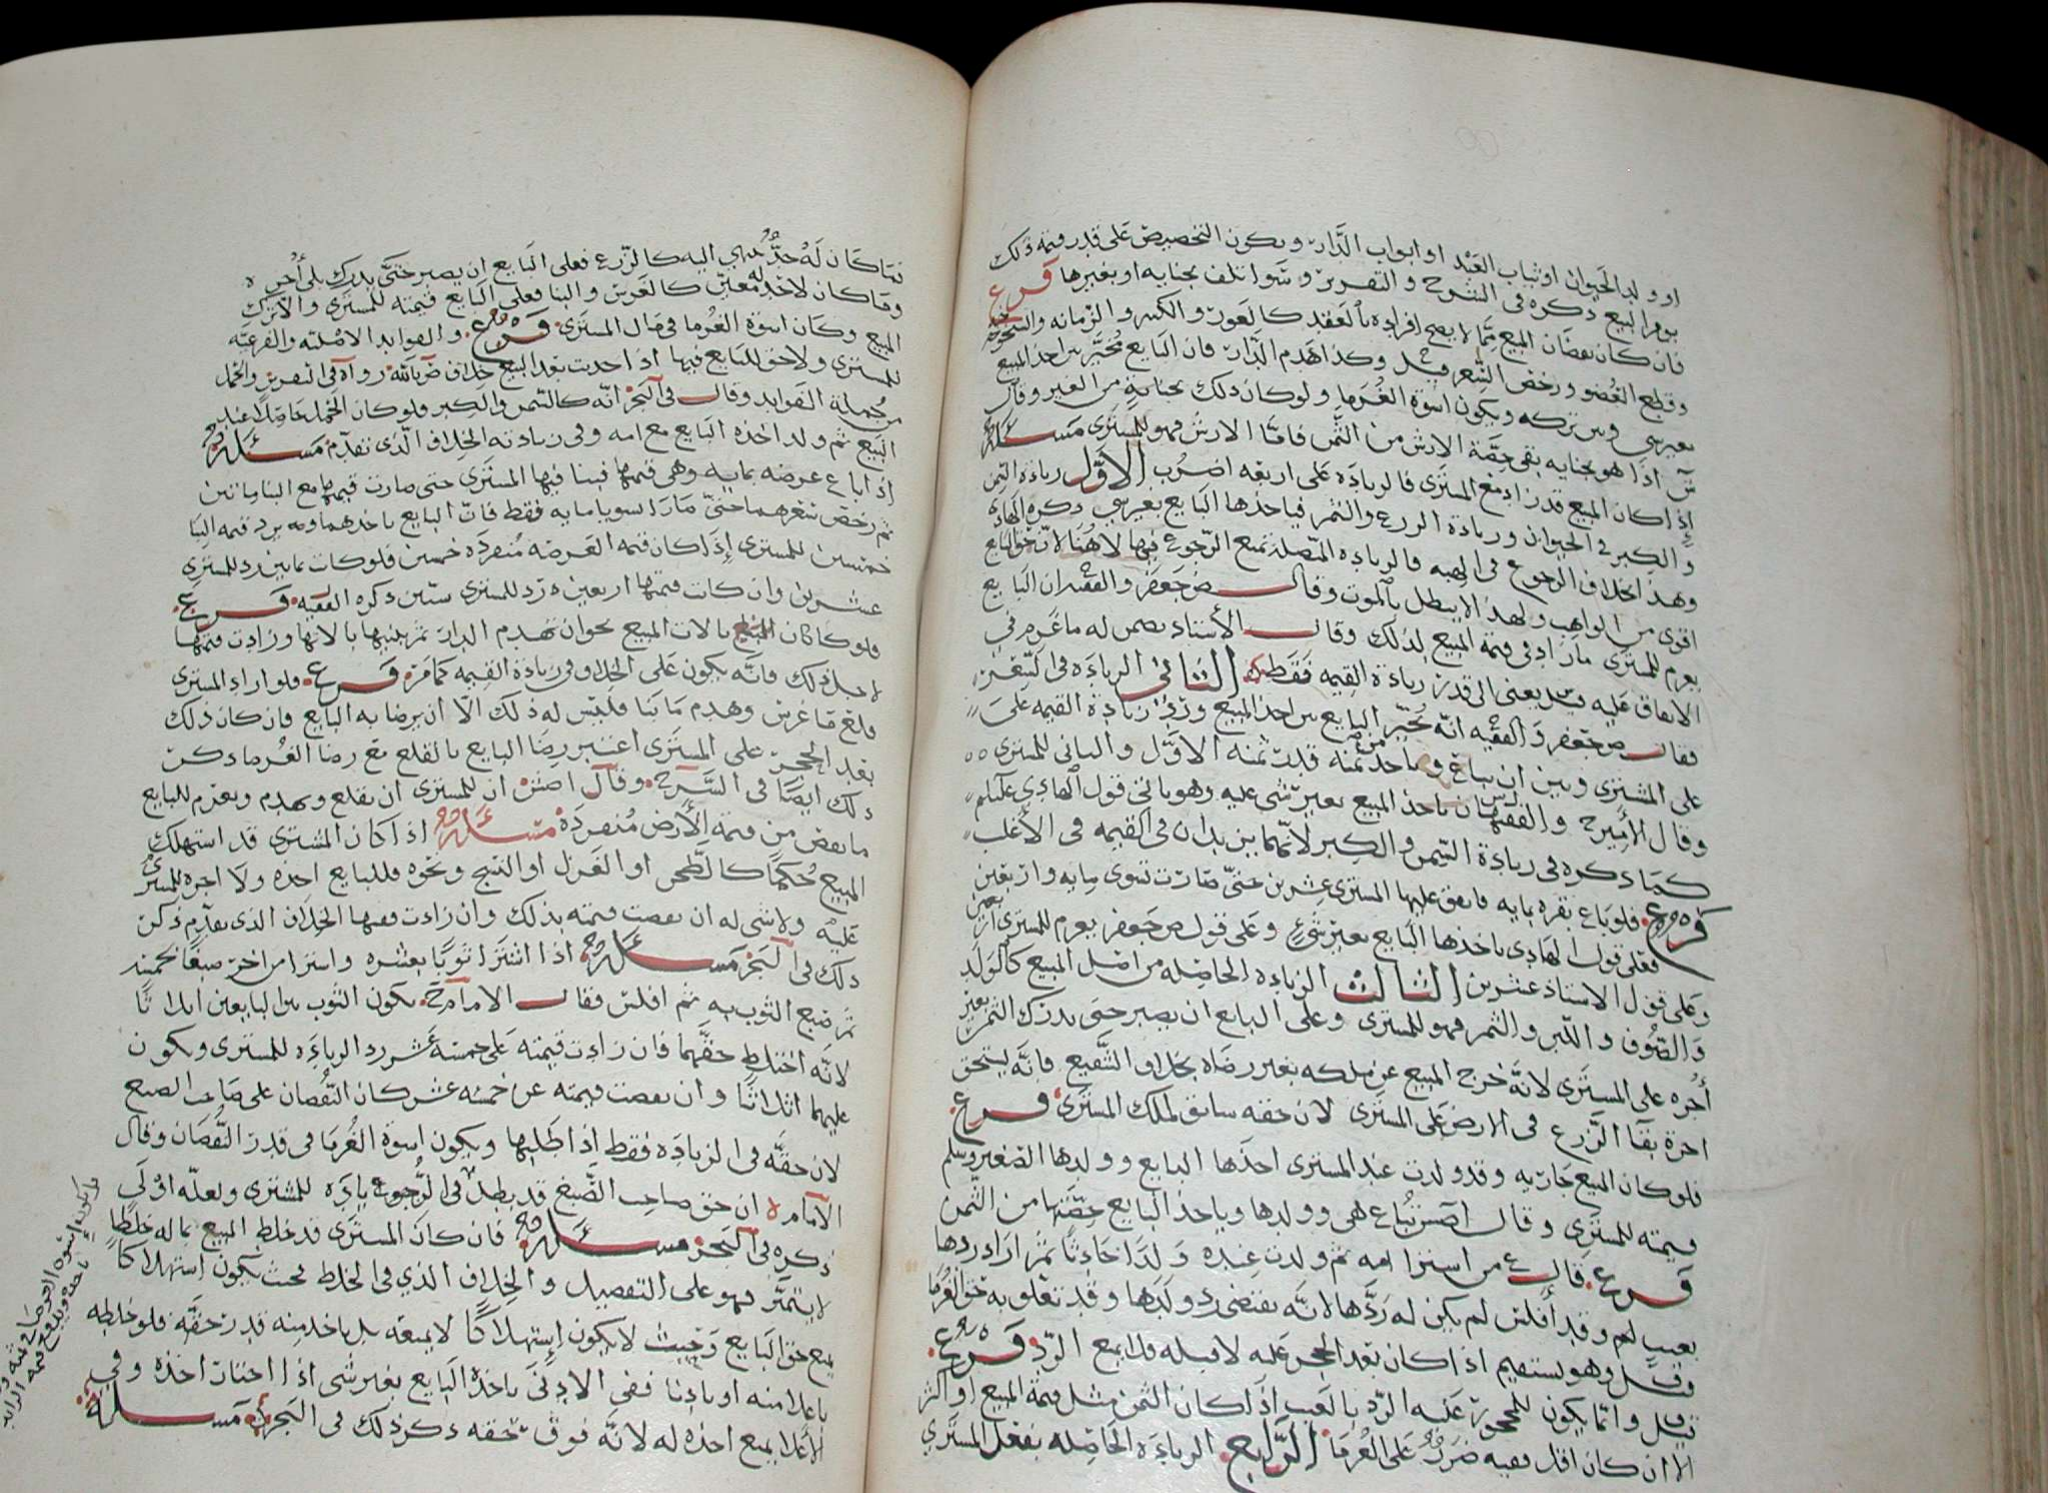 او ولد الحيوان او ثياب العبد او ابواب الدار ويكون التخصيص على قدر قيمة ذلك
يوم البيع ذكره في الشرح والتقرير وسوا تلف بجنايه او بغيرها فرع
فان كان نقصان المبيع مما لا يصح افراده بالعقد كالعور والكبر والزمانه
وقطع العضو ورخص السعر قيل وكذا هدم الدار فان البايع مخير بين اخذ المبيع
بغير شي وبين تركه ويكون اسوة الغرما ولو كان ذلك بجناية من الغير وقال
ش اذا هو بجنايه بقي حصة الارش من الثمن فاما الارش فهو للمشتري مسئلة
إذا كان المبيع قد زاد مع المشتري فالزيادة على اربعه اضرب الاول زيادة السمن
والكبر في الحيوان وزيادة الزرع والثمر فياخذها البايع بغير شي ذكره الهادي
وهذا بخلاف الرجوع في الهبه فالزياده المتصلة تمنع الرجوع فيها لا هنا لان حق البايع
اقوى من الواهب ولهذا لا يبطل بالموت وقال ض جعفر والفقيه ان البايع
يغرم للمشتري ما زاد في قيمة المبيع لذلك وقال الأستاذ يضمن له ما غرم في
الانفاق عليه يعني الى قدر زيادة القيمه فقط الثاني الزيادة في السعر
فقال ض جعفر والفقيه انه يخير البايع بين اخذ المبيع ورد زيادة القيمه على
على المشتري وبين ان يباع وياخذ من ثمنه قدر ثمنه الاول والباقي للمشتري
وقال الأمير ح والفقيه ان ياخذ المبيع بغير شي عليه وهو ياتي على قول الهادي عليلم
كما ذكره في زيادة السمن والكبر لأنهما يزيدان في القيمه في الأغلب
فرع فلو باع بقره بمايه فانفق عليها المشتري عشرين حتى صارت تسوى مايه واربعين
فعلى قول الهادي ياخذها البايع بغير شي وعلى قول ض جعفر يغرم للمشتري اربعين
وعلى قول الاستاذ عشرين الثالث الزياده الحاصله من اصل المبيع كالولد
والصوف واللبن والثمر فهو للمشتري وعلى البايع ان يصبر حتى يدرك الثمر بغير
أجره على المشتري لانه خرج المبيع عن ملكه بغير رضاه بخلاف الشفيع فانه يستحق
اجرة بقا الزرع في الارض على المشتري لان حقه سابق لملك المشتري فرع
فلو كان المبيع جاريه وقد ولدت عند المشتري اخذها البايع وولدها الصغير وسلم
قيمته للمشتري وقال اصش تباع هي وولدها وياخذ البايع حصتها من الثمن
فرع قال ع من اشترا امه ثم ولدت عنده ولدا حادثا ثم اراد ردها
بعيب لهم وقد أفلس لم يكن له ردها لانه يقتضي رد ولدها وقد تعلق به حق الغرما
قيل وهو يستقيم اذا كان بعد الحجر عليه لا قبله فلا يمنع الرد فرع
قيل وانما يكون للمحجور عليه الرد بالعيب إذا كان الثمن مثل قيمة المبيع او اكثر
الا ان كان اقل ففيه ضرر على الغرما الرابع الزيادة الحاصله بفعل المشتري
فما كان له حد ينتهي اليه كالزرع فعلى البايع ان يصبر حتى يدرك بلا أجره
وما كان لا حد له معين كالغرس والبنا فعلى البايع قيمته للمشتري والا ترك
المبيع وكان اسوة الغرما في مال المشتري فرع والفوايد الاصليه والفرعيه
للمشتري ولا حق للبايع فيها اذا حدثت بعد البيع خلاف ض بالله رواه في التقرير والحمل
من جملة الفوايد وقال في البحر انه كالسمن والكبر فلو كان الحمل حاصلا عند
البيع ثم ولد اخذه البايع مع امه وفي زيادته الخلاف الذي تقدم مسئلة
إذا باع عرصه بمايه وهي قيمتها فبنا فيها المشتري حتى صارت قيمتها مع البنا مائتين
ثم رخص سعرهما حتى صارا يسويا مايه فقط فان البايع ياخذهما ويرد قيمة البنا
خمسين للمشتري إذا كان قيمة العرصه منفردة خمسين فلو كانت ثمانين رد للمشتري
عشرين وان كانت قيمتها اربعين رد للمشتري ستين ذكره الفقيه فرع
فلو كان البنا بالات المبيع نحو ان تهدم الدار ثم يبنيها بالاتها وزادت قيمتها
لاجل ذلك فانه يكون على الخلاف في زيادة القيمه كما مر فرع فلو اراد المشتري
قلع ما غرس وهدم ما بنا فليس له ذلك الا ان يرضا به البايع فان كان ذلك
بعد الحجر على المشتري اعتبر رضا البايع بالقلع مع رضا الغرما ذكر
ذلك ايضا في الشرح وقال اصش ان للمشتري ان يقلع ويهدم ويغرم للبايع
ما نقص من قيمة الأرض منفردة مسئلة اذا كان المشتري قد استهلك
المبيع حكما كالطحن او الغزل او النسج ونحوه فللبايع اخذه ولا اجره للمشتري
عليه ولا شي له ان نقصت قيمته بذلك وان زادت ففيها الخلاف الذي تقدم ذكر
ذلك في البحر مسئلة اذا اشترا ثوبا بعشره واشترا من اخر صبغا بخمسه
ثم صبغ الثوب به ثم افلس فقال الامام ح يكون الثوب بين البايعين اثلاثا
لانه اختلط حقهما فان زادت قيمته على خمسة عشر رد الزيادة للمشتري ويكون
عليهما اثلاثا وان نقصت قيمته عن خمسه عشر كان النقصان على صاحب الصبغ
لان حقه في الزياده فقط إذا طلبها ويكون اسوة الغرما في قدر النقصان وقال
الامام ان حق صاحب الصبغ قد بطل في الرجوع بايره للمشتري ولعله اولى
ذكره في البحر مسئلة فان كان المشتري قد خلط المبيع بماله خلطا
لا يتميز فهو على التفصيل والخلاف الذي في الخلط بحيث يكون إستهلاكا
يمنع حق البايع وحيث لا يكون إستهلاكا لا يمنعه بل ياخذ منه قدر حقه فلو خلطه
باعلا منه او بادنا ففي الادنى ياخذه البايع بغير شي اذا اختار اخذه وفي
الأعلا يمنع اخذه له لانه فوق حقه ذكر ذلك في البحر مسئلة